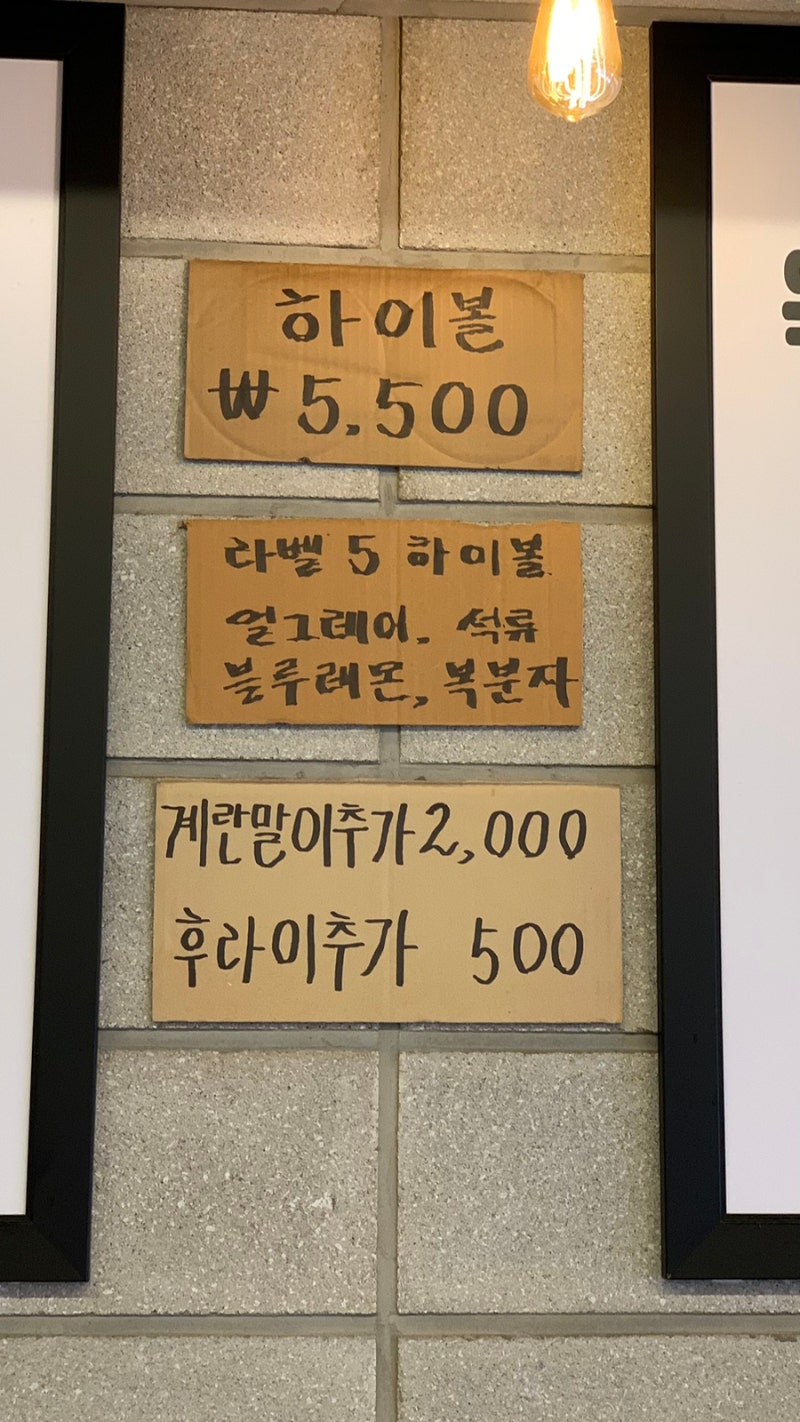 하이볼
₩5,500
라벨 5 하이볼
얼그레이, 석류
블루레몬, 복분자
계란말이추가 2,000
후라이추가 500